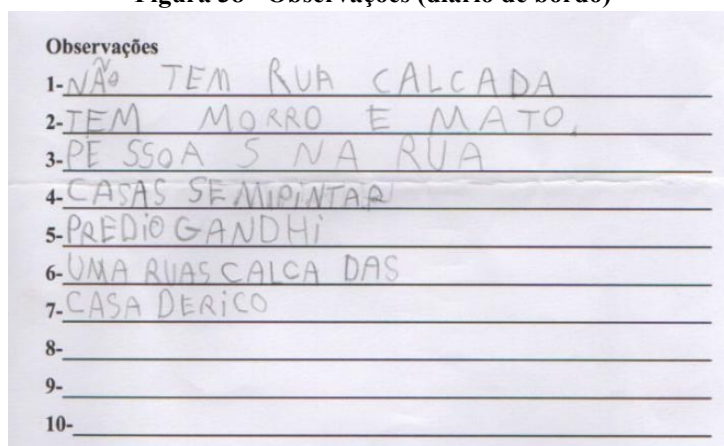 Figura 38 - Observações (diário de bordo)
Observações
1- NÃO TEM RUA CALCADA
2- TEM MORRO E MATO.
3- PE SSOA S NA RUA
4- CASAS SEMIPINTAR
5- PREDIO GANDHI
6- UMA RUAS CALCA DAS
7- CASA DERICO
8-
9-
10-